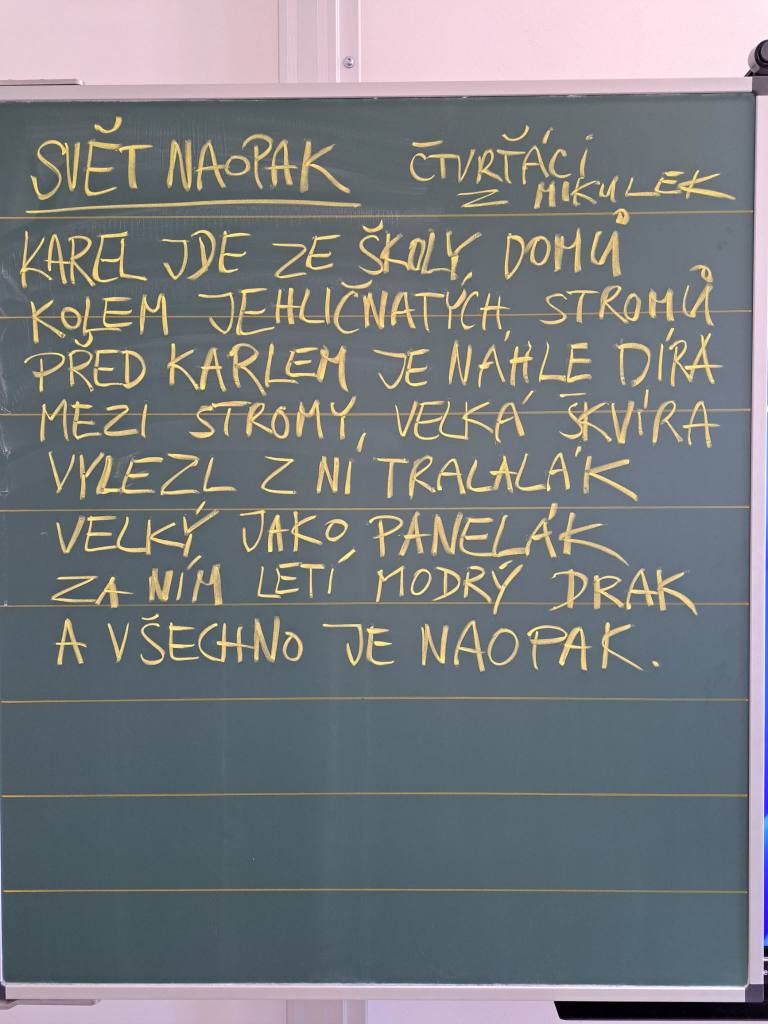 SVĚT NAOPAK
ČTVRŤÁCI
Z MIKULEK
KAREL JDE ZE ŠKOLY DOMŮ
KOLEM JEHLIČNATÝCH STROMŮ
PŘED KARLEM JE NÁHLE DÍRA
MEZI STROMY, VELKÁ ŠKVÍRA
VYLEZL Z NÍ TRALALÁK
VELKÝ JAKO PANELÁK
ZA NÍM LETÍ MODRÝ DRAK
A VŠECHNO JE NAOPAK.